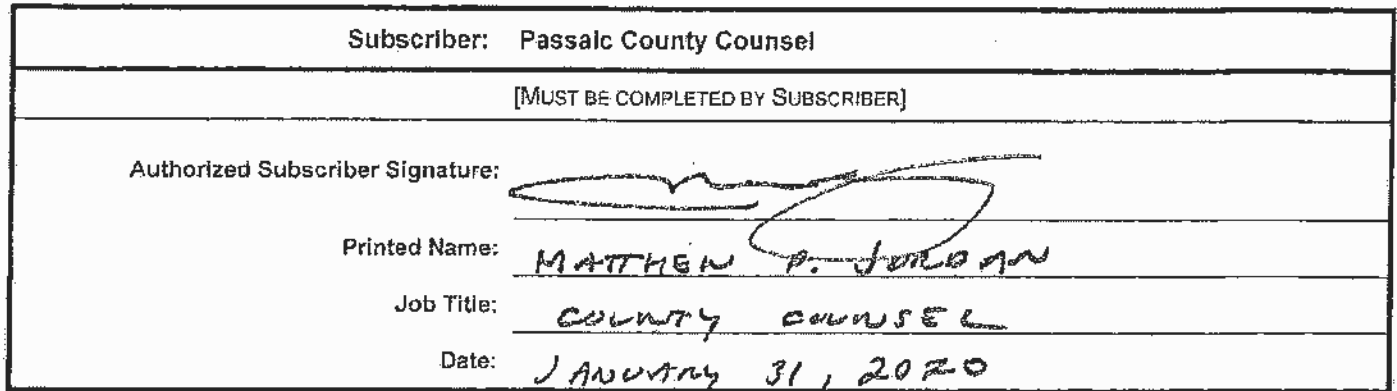 Subscriber: Passaic County Counsel
[MUST BE COMPLETED BY SUBSCRIBER]
Authorized Subscriber Signature:
Printed Name: MATTHEW P. JORDAN
Job Title: COUNTY COUNSEL
Date: JANUARY 31, 2020